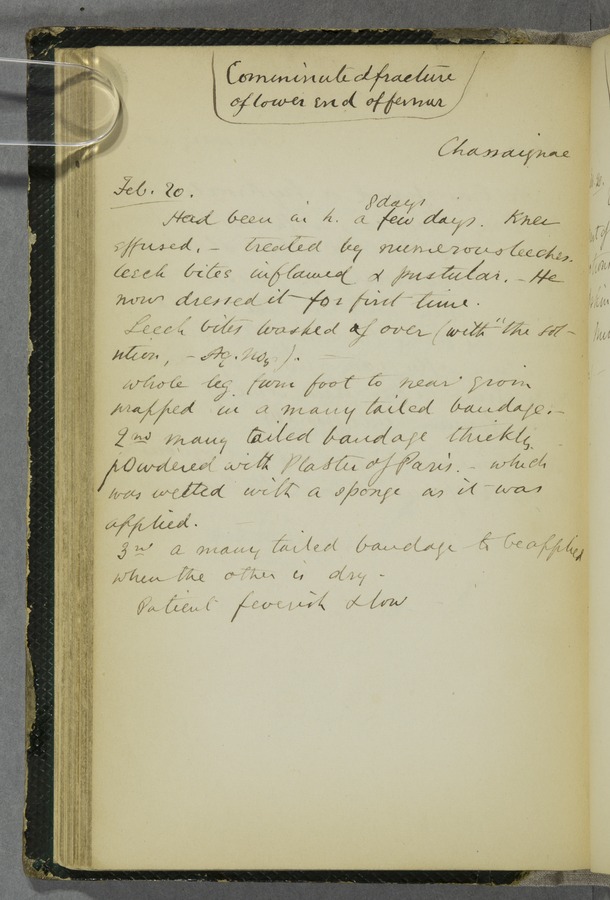 Comminuted fracture
of lower end of femur
Chassaignac
Feb. 20.
8 days
Had been in h. a few days. Knee
effused. - treated by numerous leeches.
leech bites inflamed & pustular. - He
now dressed it for first time.
Leech bites washed over (with "the sol-
ution, - Ag. NO5).
whole leg from foot to near groin
wrapped in a many tailed bandage. -
2nd many tailed bandage thickly
powdered with Plaster of Paris. - which
was wetted with a sponge as it was
applied.
3rd a many tailed bandage to be applied
when the other is dry -
Patient feverish & low